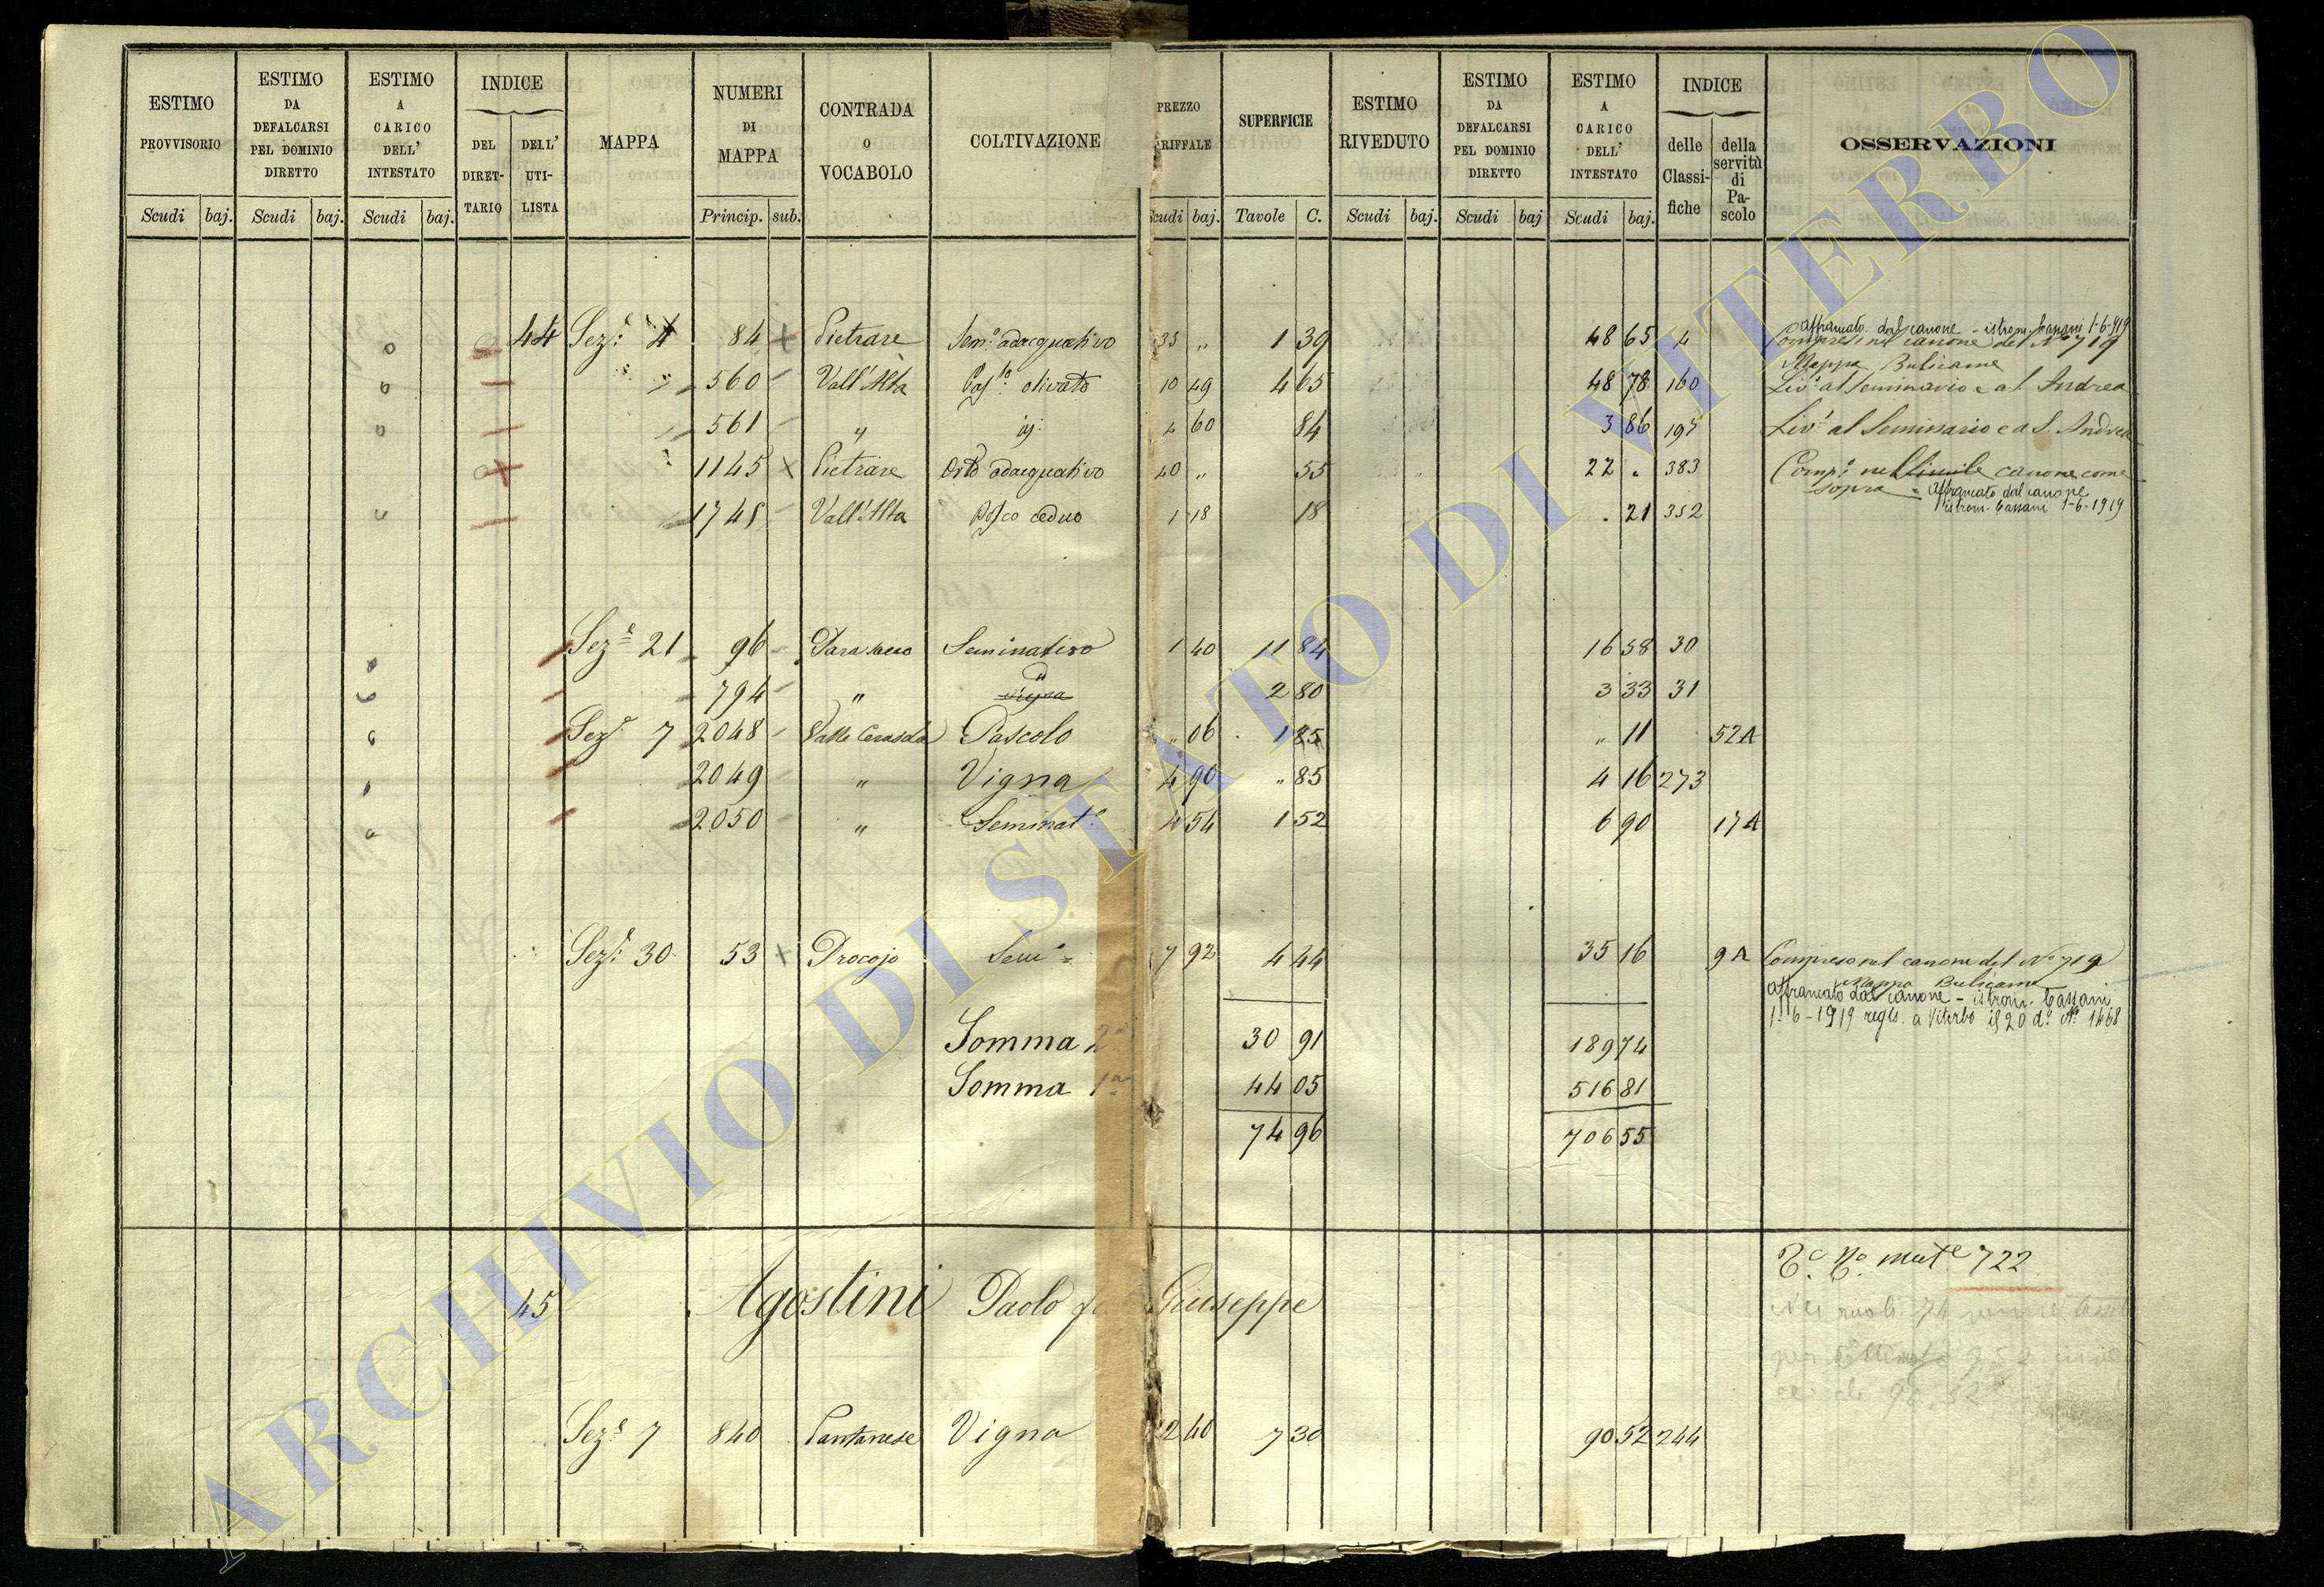 ESTIMO PROVVISORIO
ESTIMO DA DEFALCARSI PEL DOMINIO DIRETTO
ESTIMO A CARICO DELL' INTESTATO
INDICE
DEL DIRET-TARIO
DELL' UTI-LISTA
MAPPA
NUMERI DI MAPPA
CONTRADA O VOCABOLO
COLTIVAZIONE
PREZZO
RIFFALE
SUPERFICIE
ESTIMO RIVEDUTO
ESTIMO DA DEFALCARSI PEL DOMINIO DIRETTO
ESTIMO A CARICO DELL' INTESTATO
INDICE
delle Classi-fiche
della servitù di Pa-scolo
OSSERVAZIONI
Scudi baj. Scudi baj. Scudi baj. Princip. sub. Scudi baj. Tavole C. Scudi baj. Scudi baj Scudi baj.
affrancato dal canone - istrom. Cassani 1-6-919
44 Sez.e 4 84 Pietrare Sem.o adacquativo 35 " 1 39 48 65 4 Compreso nel canone del No 719
Mappa Bulicame
560 Vall'Alta Pas.lo olivato 10 49 4 65 48 78 160 Liv.o al Seminario e a S. Andrea
561 " id. 4 60 84 3 86 195 Liv.o al Seminario e a S. Andrea
1145 Pietrare Orto adacquativo 40 " 55 22 . 383 Comp.o nel simile canone come
sopra = affrancato dal canone
1745 Vall'Alta Bosco ceduo 1 18 18 . 21 352 istrom. Cassani 1-6-1919
Sez.e 21 96 Seminativo 1 40 11 84 16 58 30
794 " Vigna " 2 80 3 33 31
Sez.e 7 2048 Valle Cerasola Pascolo " 06 1 85 " 11 52A
2049 " Vigna 4 90 " 85 4 16 273
2050 " Seminat.o 4 54 1 52 6 90 17A
Sez.e 30 53 Procojo Sem.o 7 92 4 44 35 16 9A Compreso nel canone del No 719
Mappa Bulicame
affrancato dal canone - istrom. Cassani
1-6-1919 regis. a Viterbo il 20 d.o No 1468
Somma 2a 30 91 189 74
Somma 1a 44 05 516 81
74 96 706 55
mut.e 722
45 Agostini Paolo Giuseppe
Sez.e 7 840 Pantanese Vigna 12 40 7 30 90 52 244
ARCHIVIO DI STATO DI VITERBO